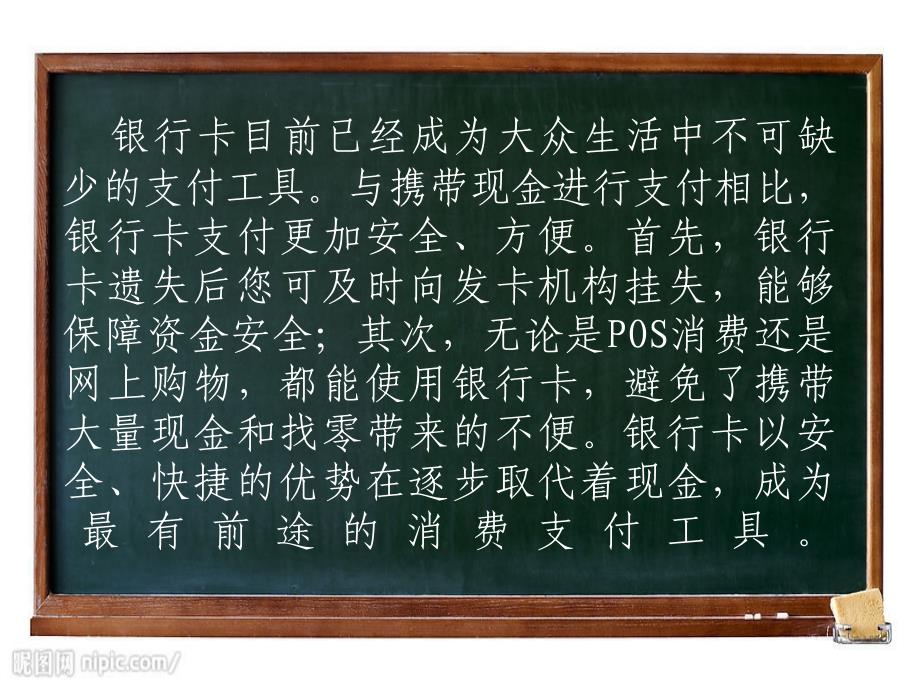 银行卡目前已经成为大众生活中不可缺
少的支付工具。与携带现金进行支付相比，
银行卡支付更加安全、方便。首先，银行
卡遗失后您可及时向发卡机构挂失，能够
保障资金安全；其次，无论是POS消费还是
网上购物，都能使用银行卡，避免了携带
大量现金和找零带来的不便。银行卡以安
全、快捷的优势在逐步取代着现金，成为
最有前途的消费支付工具。
昵图网 nipic.com/